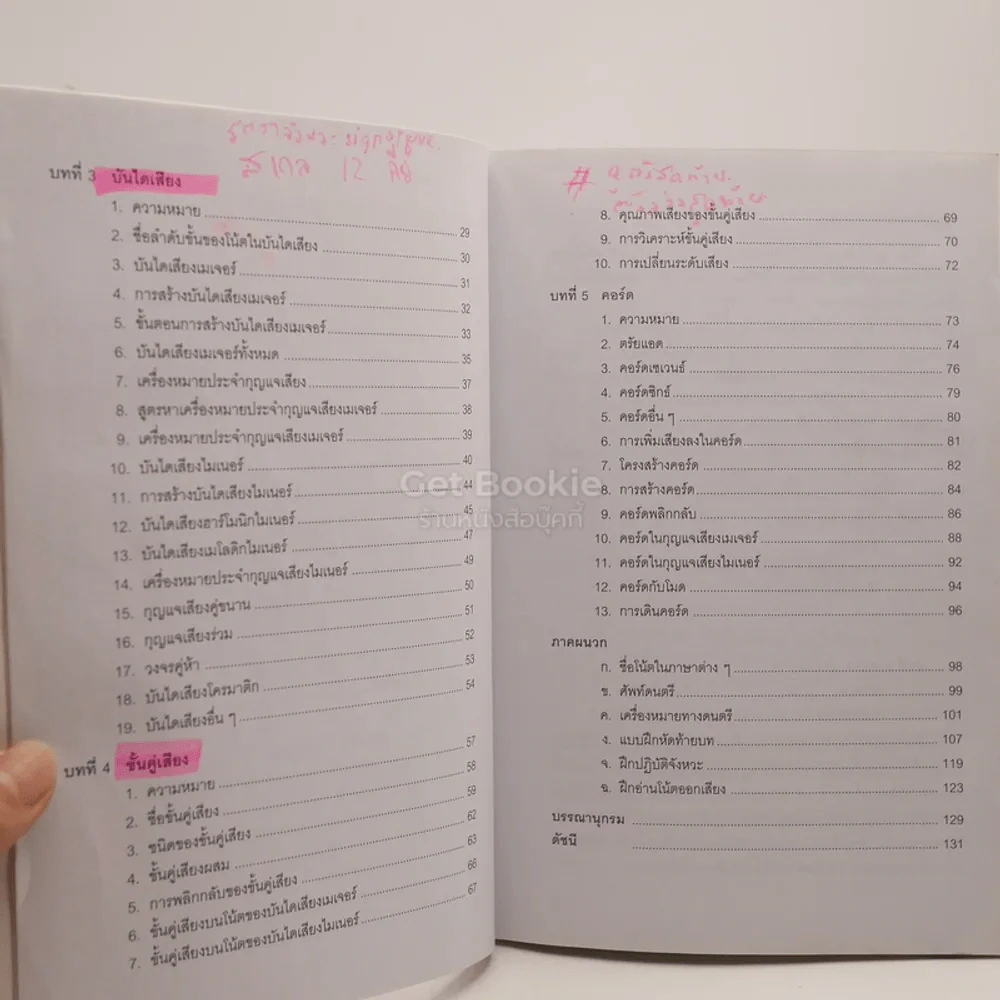 สเกล 12 คีย์
บทที่ 3 บันไดเสียง
1. ความหมาย 29
2. ชื่อลำดับขั้นของโน้ตในบันไดเสียง 30
3. บันไดเสียงเมเจอร์ 31
4. การสร้างบันไดเสียงเมเจอร์ 32
5. ขั้นตอนการสร้างบันไดเสียงเมเจอร์ 33
6. บันไดเสียงเมเจอร์ทั้งหมด 35
7. เครื่องหมายประจำกุญแจเสียง 37
8. สูตรหาเครื่องหมายประจำกุญแจเสียงเมเจอร์ 38
9. เครื่องหมายประจำกุญแจเสียงเมเจอร์ 39
10. บันไดเสียงไมเนอร์ 40
11. การสร้างบันไดเสียงไมเนอร์ 44
12. บันไดเสียงฮาร์โมนิกไมเนอร์ 45
13. บันไดเสียงเมโลดิกไมเนอร์ 47
14. เครื่องหมายประจำกุญแจเสียงไมเนอร์ 49
15. กุญแจเสียงคู่ขนาน 50
16. กุญแจเสียงร่วม 51
17. วงจรคู่ห้า 52
18. บันไดเสียงโครมาติก 53
19. บันไดเสียงอื่น ๆ 54
บทที่ 4 ขั้นคู่เสียง
1. ความหมาย 57
2. ชื่อขั้นคู่เสียง 58
3. ชนิดของขั้นคู่เสียง 59
4. ขั้นคู่เสียงผสม 62
5. การพลิกกลับของขั้นคู่เสียง 63
6. ขั้นคู่เสียงบนโน้ตของบันไดเสียงเมเจอร์ 66
7. ขั้นคู่เสียงบนโน้ตของบันไดเสียงไมเนอร์ 67
#
8. คุณภาพเสียงของขั้นคู่เสียง 69
9. การวิเคราะห์ขั้นคู่เสียง 70
10. การเปลี่ยนระดับเสียง 72
บทที่ 5 คอร์ด
1. ความหมาย 73
2. ตรัยแอด 74
3. คอร์ดเซเวนธ์ 76
4. คอร์ดซิกธ์ 79
5. คอร์ดอื่น ๆ 80
6. การเพิ่มเสียงลงในคอร์ด 81
7. โครงสร้างคอร์ด 82
8. การสร้างคอร์ด 84
9. คอร์ดพลิกกลับ 86
10. คอร์ดในกุญแจเสียงเมเจอร์ 88
11. คอร์ดในกุญแจเสียงไมเนอร์ 92
12. คอร์ดกับโมด 94
13. การเดินคอร์ด 96
ภาคผนวก
ก. ชื่อโน้ตในภาษาต่าง ๆ 98
ข. ศัพท์ดนตรี 99
ค. เครื่องหมายทางดนตรี 101
ง. แบบฝึกหัดท้ายบท 107
จ. ฝึกปฏิบัติจังหวะ 119
ฉ. ฝึกอ่านโน้ตออกเสียง 123
บรรณานุกรม 129
ดัชนี 131
Get Bookie
ร้านหนังสือบุ๊คกี้